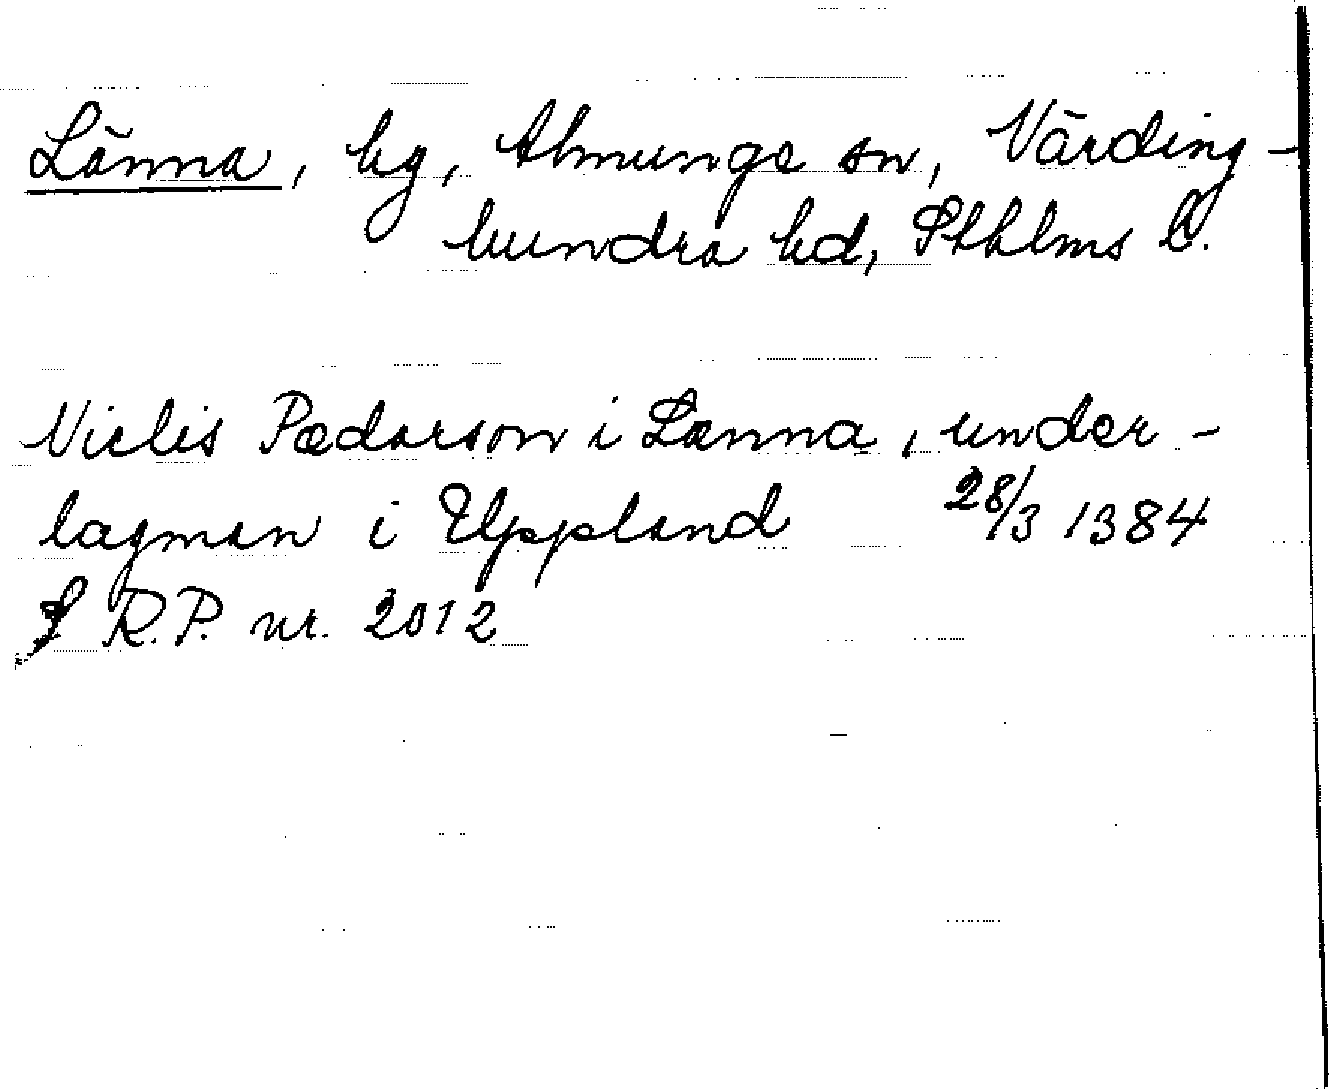 Länna, by, Almunge sn, Närding-
hundra hd, Sthlms l.
Niclis Pædarson i Lænna, under-
lagman i Uppland 28/3 1384
R.P. nr. 2012